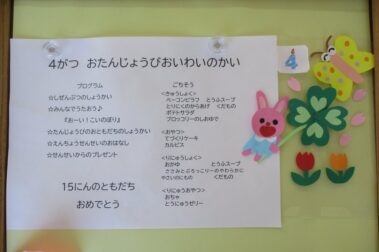 4がつ おたんじょうびおいわいのかい
プログラム
☆しぜんぶつのしょうかい
☆みんなでうたおう♪
『お～い！こいのぼり』
☆たんじょうびのおともだちのしょうかい
☆えんちょうせんせいのおはなし
☆せんせいからのプレゼント
15にんのともだち
おめでとう
ごちそう
<きゅうしょく>
ベーコンピラフ とうふスープ
とりにくのからあげ くだもの
ポテトサラダ
ブロッコリーのしおゆで
<おやつ>
てづくりケーキ
カルピス
<りにゅうしょく>
おかゆ とうふスープ
ささみとぶろっこりーのやわらかに
やさいのにもの くだもの
<りにゅうおやつ>
おちゃ
とうにゅうゼリー
4